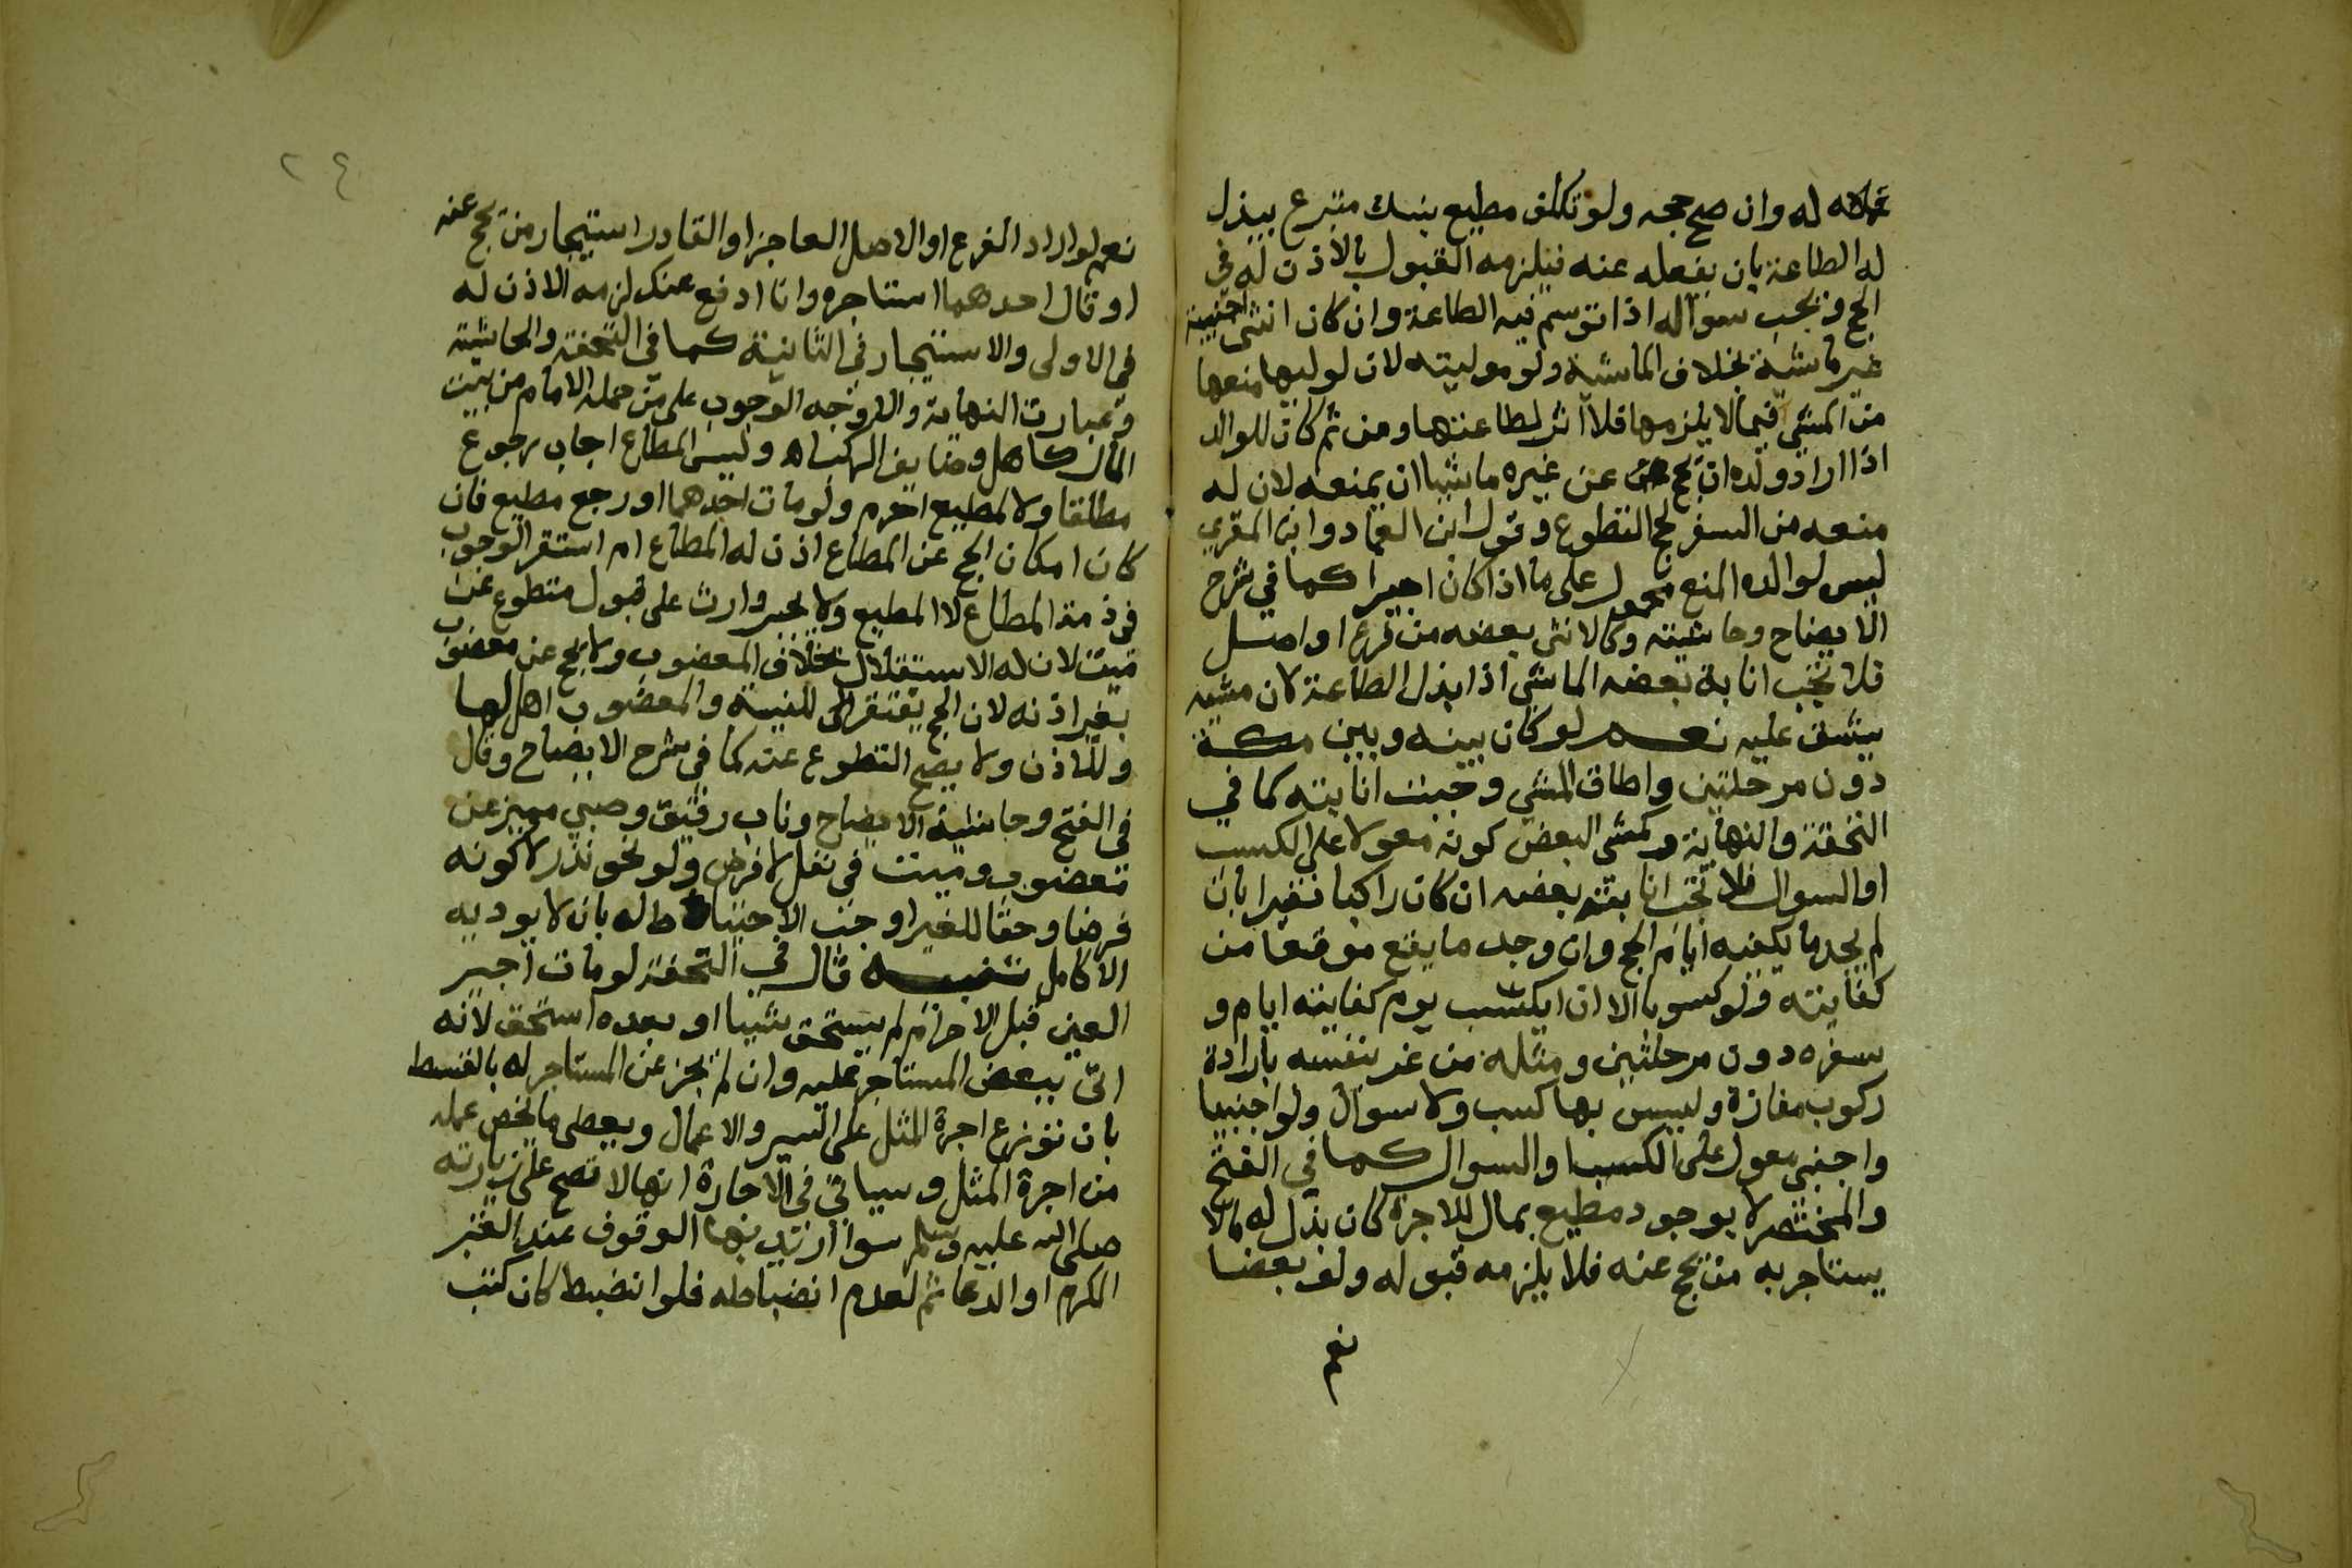 له وان صح حجه ولو تكلف مطيع بنسك متبرع ببذل
له الطاعة بان يفعله عنه فيلزمه القبول بالاذن له في
الحج ويجب سواله اذا توسم فيه الطاعة وان كان انثى اجنبية
غير ماشية بخلاف الماشية ولو موليته لان لوليها منعها
من المشي فيما لا يلزمها فلا اثر لطاعتها ومن ثم كان للوالد
اذا اراد ولده ان يحج عن غيره ماشيا ان يمنعه لان له
منعه من السفر لحج التطوع وقول ابن العماد وابن المقري
ليس لوالده المنع محمول على ما اذا كان اجيرا كما في شرح
الايضاح وحاشيته وكالانثى بعضه من فرع او اصل
فلا تجب انابة بعضه الماشي اذا بذل الطاعة لان مشيه
يشق عليه نعم لو كان بينه وبين مكة
دون مرحلتين واطاق المشي وجبت انابته كما في
التحفة والنهاية وكمشي البعض كونه معولا على الكسب
او السوال فلا تجب انابته بعضه ان كان راكبا فقيرا بان
لم يجد ما يكفيه ايام الحج وان وجد ما يقع موقعا من
كفايته ولو كسوبا الا ان ايكتسب يوم كفايته ايام و
سفره دون مرحلتين ومثله من غرر بنفسه بارادة
ركوب مفازة وليس بها كسب ولا سوال ولو اجنبيا
واجنبي معول على الكسب او السوال كما في الفتح
والمختصر لا بوجود مطيع بمال للاجرة كان بذل له مالا
يستاجر به من يحج عنه فلا يلزمه قبوله ولو بعضا
نعم
٢٤
نعم لو اراد الفرع او الاصل العاجز او القادر استيجار من يحج عنه
او قال احدهما استاجره وانا ادفع عنك لزمه الاذن له
في الاولى والاستيجار في الثانية كما في التحفة والحاشية
وعبارت النهاية والاوجه الوجوب على من حمله الامام من بيت
المال كاهل وضايف الركب اه وليس المطاع اجاب رجوع
مطلقا ولا لمطيع احرم ولو مات احدهما او رجع مطيع فان
كان امكان الحج عن المطاع اذن له المطاع ام استقر الوجوب
في ذمة المطاع لا المطيع ولا يجبر وارث على قبول متطوع عن
ميت لان له الاستقلال بخلاف المعضوب ولا يحج عن معضوب
بغير اذنه لان الحج يفتقر الى للنية والمعضوب اهل لها
وللاذن ولا يصح التطوع عنه كما في شرح الايضاح وقال
في الفتح وحاشية الايضاح وناب رقيق وصبي مميز عن
معضوب وميت في نفل لا فرض ولو نحو نذر لا كونه
فرضا وحقا للغير اوجب الاحتياط له بان لا يوديه
الا كامل تنبيه قال في التحفة لو مات اجير
العين قبل الاحرام لم يستحق شيا او بعده استحق لانه
اتى ببعض المستاجر عليه وان لم يجز عن المستاجر له بالقسط
بان توزع اجرة المثل على السير والاعمال ويعطى ما يخص عمله
من اجرة المثل وسياتي في الاجارة انها لا تصح على زيارته
صلى الله عليه وسلم سوا اريد بها الوقوف عند القبر
المكرم او الدعا ثم لعدم انضباطه فلو انضبط كان كتب